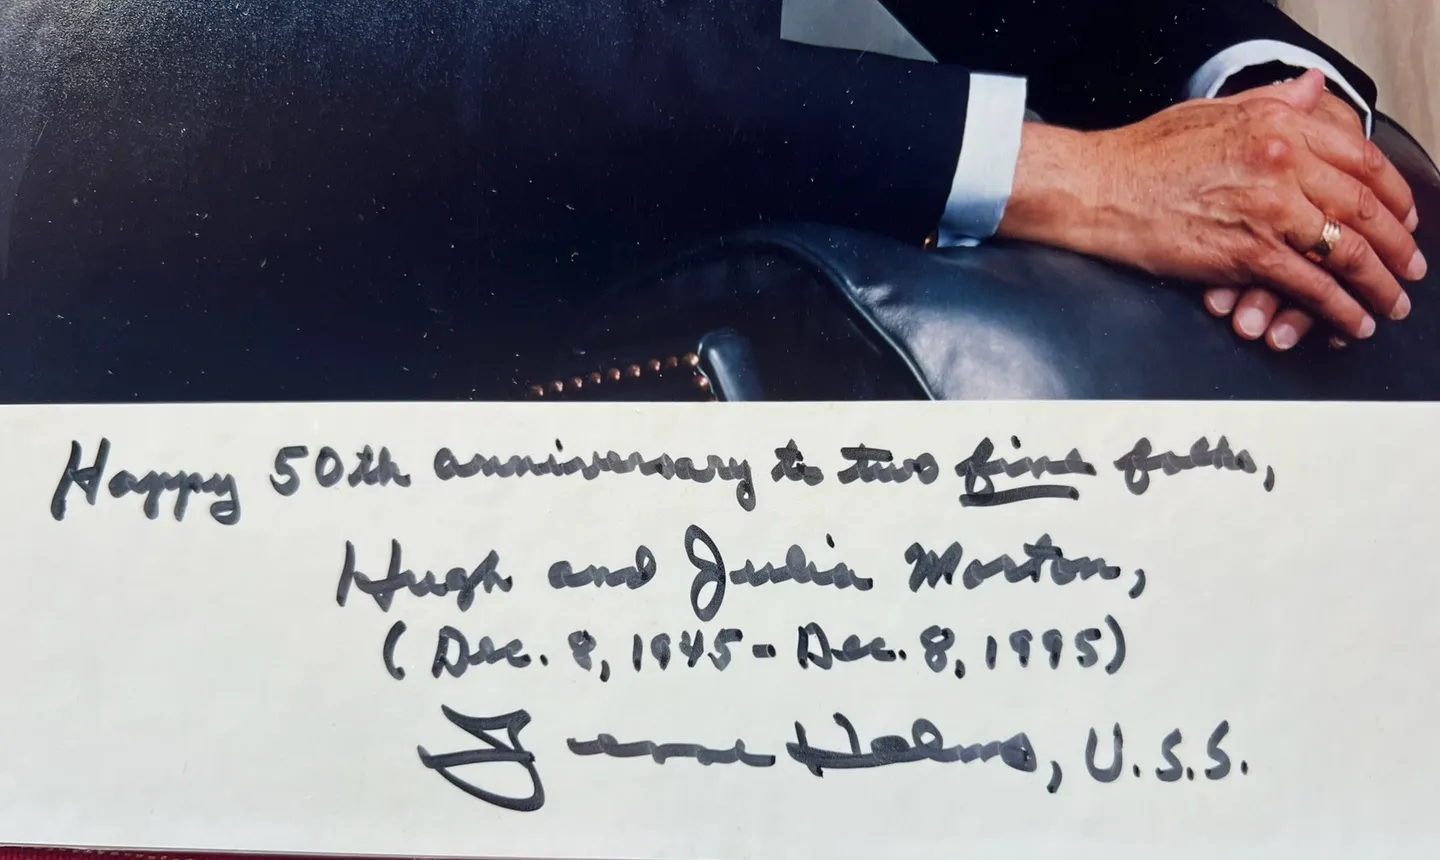 Happy 50th anniversary to two fine folks,
Hugh and Julia Morton,
(Dec. 8, 1945 - Dec. 8, 1995)
Jesse Helms, U.S.S.